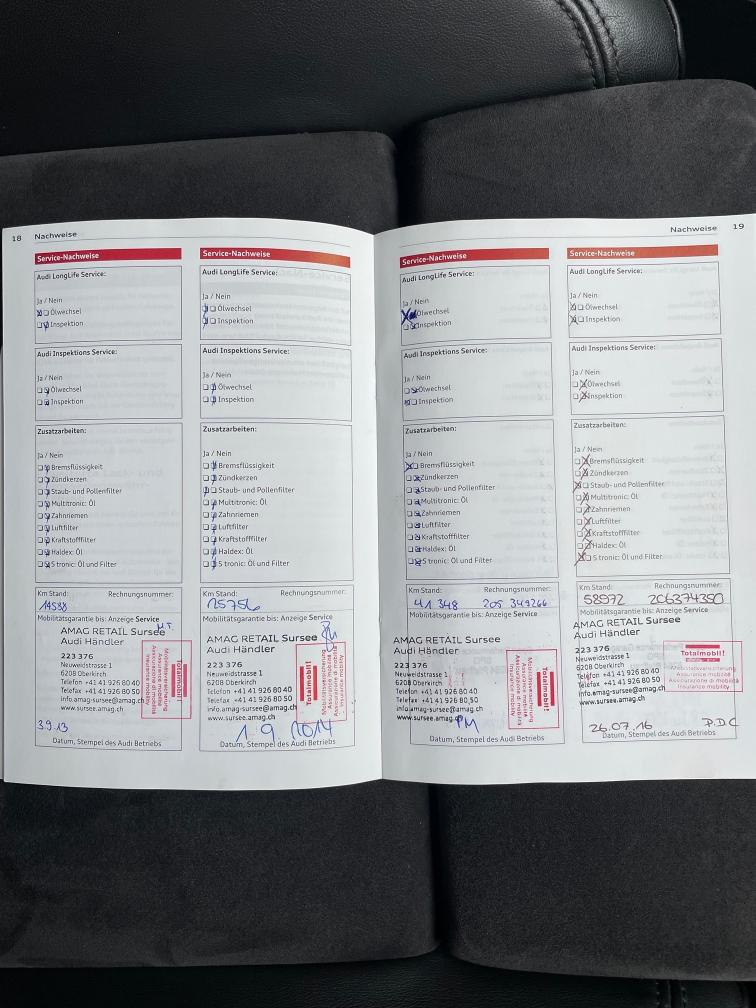 18 Nachweise
Service-Nachweise
Audi LongLife Service:
Ja / Nein
Ölwechsel
Inspektion
Audi Inspektions Service:
Ja / Nein
Ölwechsel
Inspektion
Zusatzarbeiten:
Ja / Nein
Bremsflüssigkeit
Zündkerzen
Staub- und Pollenfilter
Multitronic: Öl
Zahnriemen
Luftfilter
Kraftstofffilter
Haldex: Öl
S tronic: Öl und Filter
Km Stand: Rechnungsnummer:
14588
Mobilitätsgarantie bis: Anzeige Service
AMAG RETAIL Sursee
Audi Händler
223 376
Neuweidstrasse 1
6208 Oberkirch
Telefon +41 41 926 80 40
Telefax +41 41 926 80 50
info.amag-sursee@amag.ch
www.sursee.amag.ch
Totalmobil!
Mobilitätsversicherung
Assurance mobilité
Assicurazione di mobilità
Insurance mobility
3.9.13
Datum, Stempel des Audi Betriebs
Service-Nachweise
Audi LongLife Service:
Ja / Nein
Ölwechsel
Inspektion
Audi Inspektions Service:
Ja / Nein
Ölwechsel
Inspektion
Zusatzarbeiten:
Ja / Nein
Bremsflüssigkeit
Zündkerzen
Staub- und Pollenfilter
Multitronic: Öl
Zahnriemen
Luftfilter
Kraftstofffilter
Haldex: Öl
S tronic: Öl und Filter
Km Stand: Rechnungsnummer:
25756
Mobilitätsgarantie bis: Anzeige Service
AMAG RETAIL Sursee
Audi Händler
223 376
Neuweidstrasse 1
6208 Oberkirch
Telefon +41 41 926 80 40
Telefax +41 41 926 80 50
info.amag-sursee@amag.ch
www.sursee.amag.ch
Totalmobil!
Mobilitätsversicherung
Assurance mobilité
Assicurazione di mobilità
Insurance mobility
1.9.2014
Datum, Stempel des Audi Betriebs
Nachweise 19
Service-Nachweise
Audi LongLife Service:
Ja / Nein
Ölwechsel
Inspektion
Audi Inspektions Service:
Ja / Nein
Ölwechsel
Inspektion
Zusatzarbeiten:
Ja / Nein
Bremsflüssigkeit
Zündkerzen
Staub- und Pollenfilter
Multitronic: Öl
Zahnriemen
Luftfilter
Kraftstofffilter
Haldex: Öl
S tronic: Öl und Filter
Km Stand: Rechnungsnummer:
41 348 205 349266
Mobilitätsgarantie bis: Anzeige Service
AMAG RETAIL Sursee
Audi Händler
223 376
Neuweidstrasse 1
6208 Oberkirch
Telefon +41 41 926 80 40
Telefax +41 41 926 80 50
info.amag-sursee@amag.ch
www.sursee.amag.ch
PM
Totalmobil!
Mobilitätsversicherung
Assurance mobilité
Assicurazione di mobilità
Insurance mobility
Datum, Stempel des Audi Betriebs
Service-Nachweise
Audi LongLife Service:
Ja / Nein
Ölwechsel
Inspektion
Audi Inspektions Service:
Ja / Nein
Ölwechsel
Inspektion
Zusatzarbeiten:
Ja / Nein
Bremsflüssigkeit
Zündkerzen
Staub- und Pollenfilter
Multitronic: Öl
Zahnriemen
Luftfilter
Kraftstofffilter
Haldex: Öl
S tronic: Öl und Filter
Km Stand: Rechnungsnummer:
58972 206374350
Mobilitätsgarantie bis: Anzeige Service
AMAG RETAIL Sursee
Audi Händler
223 376
Neuweidstrasse 1
6208 Oberkirch
Telefon +41 41 926 80 40
Telefax +41 41 926 80 50
info.amag-sursee@amag.ch
www.sursee.amag.ch
Totalmobil!
Mobilitätsversicherung
Assurance mobilité
Assicurazione di mobilità
Insurance mobility
26.07.16 P.DC
Datum, Stempel des Audi Betriebs